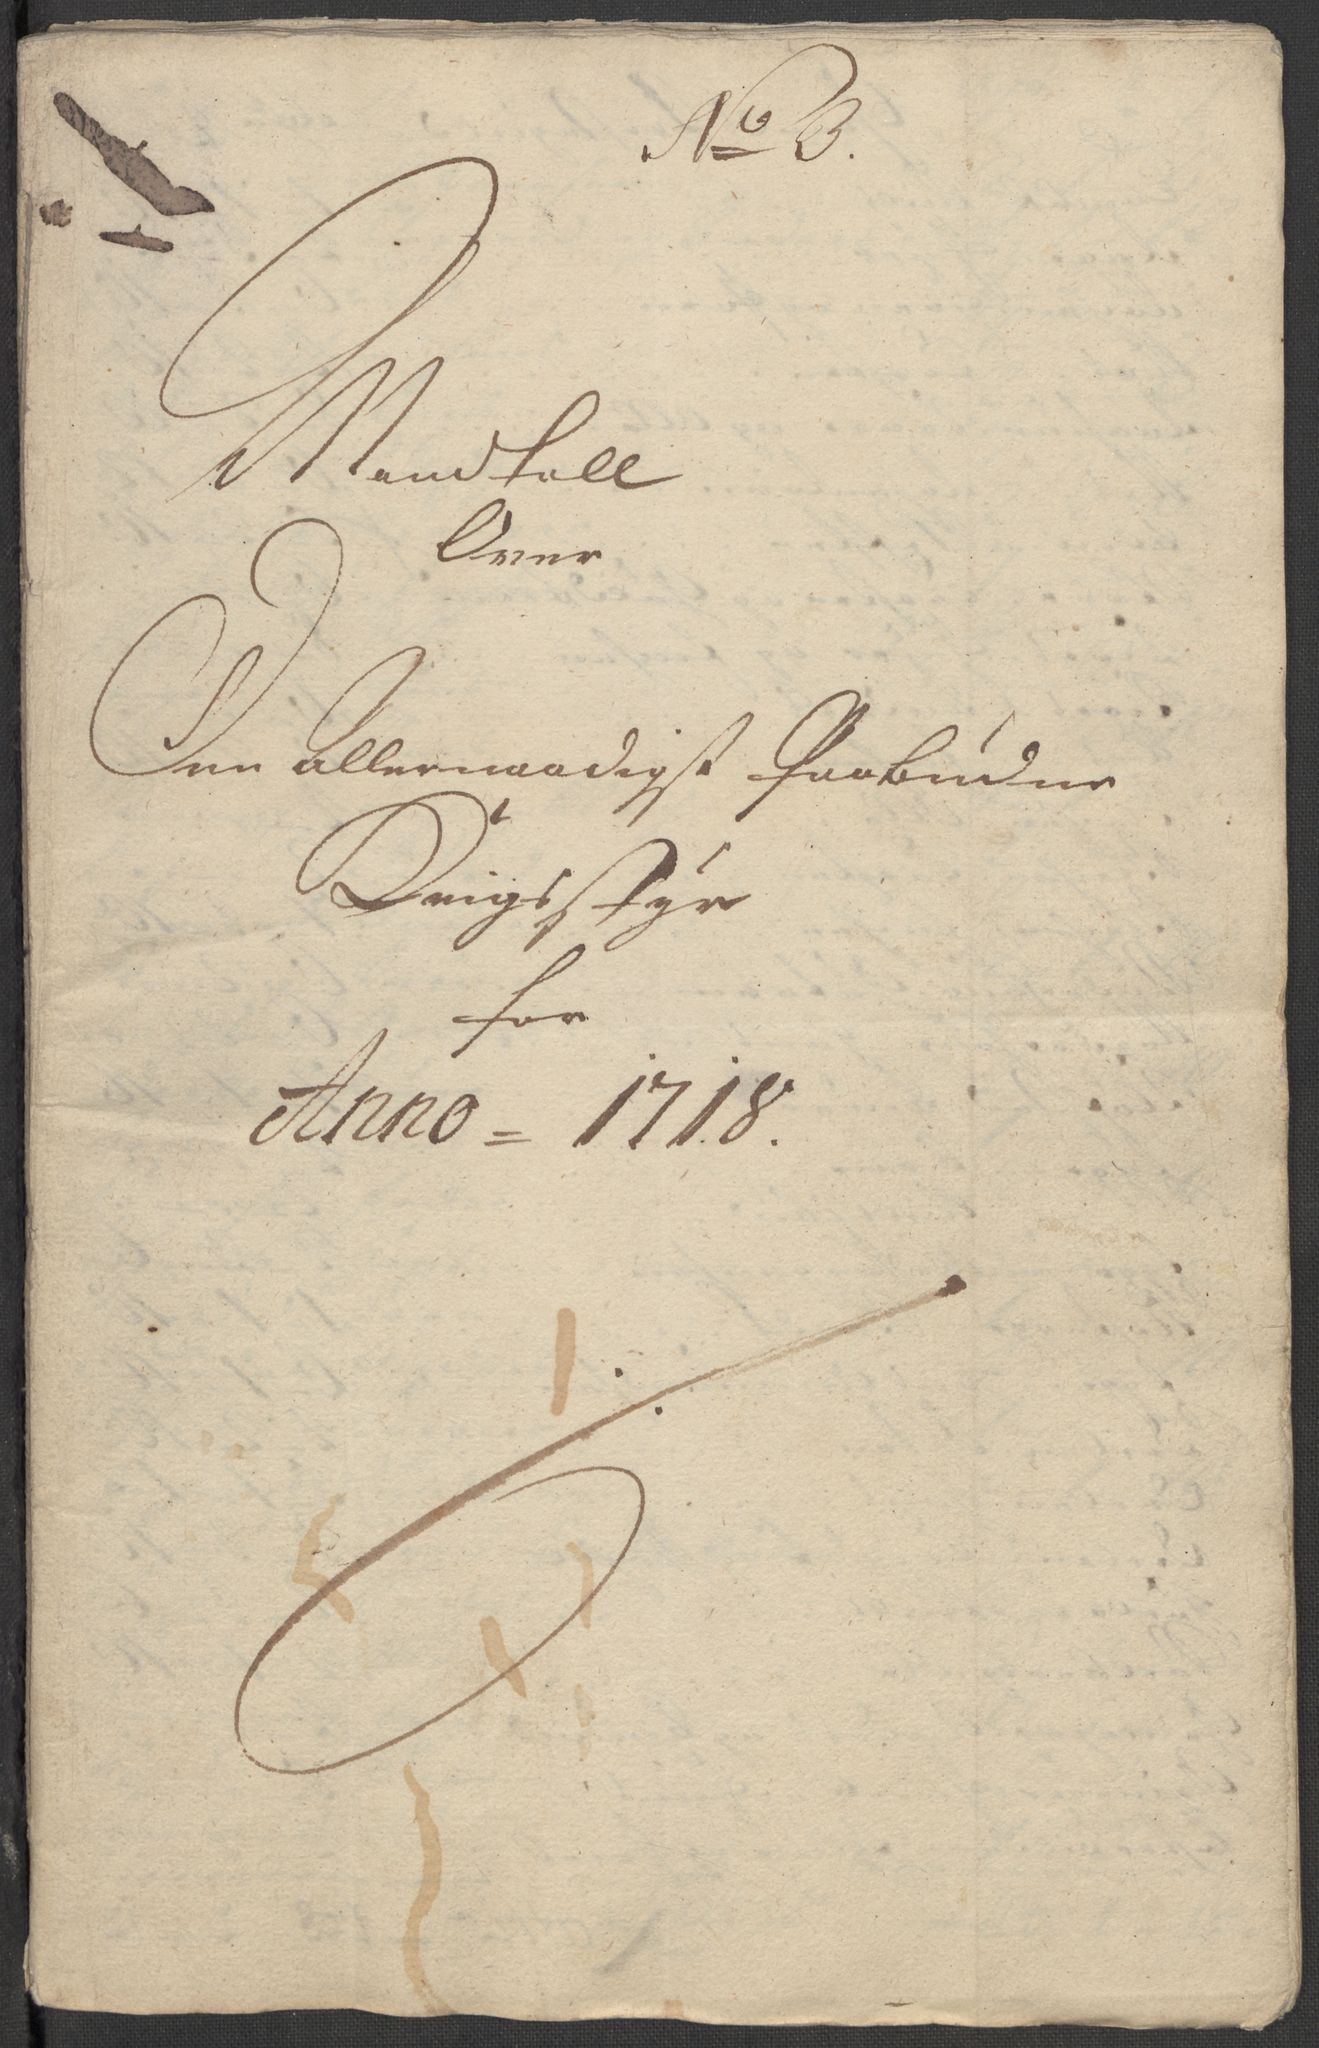 No 3.
Mandtall
Over
Den allernaadigst Paabudne
Krigsstÿr
for
Anno = 1718.